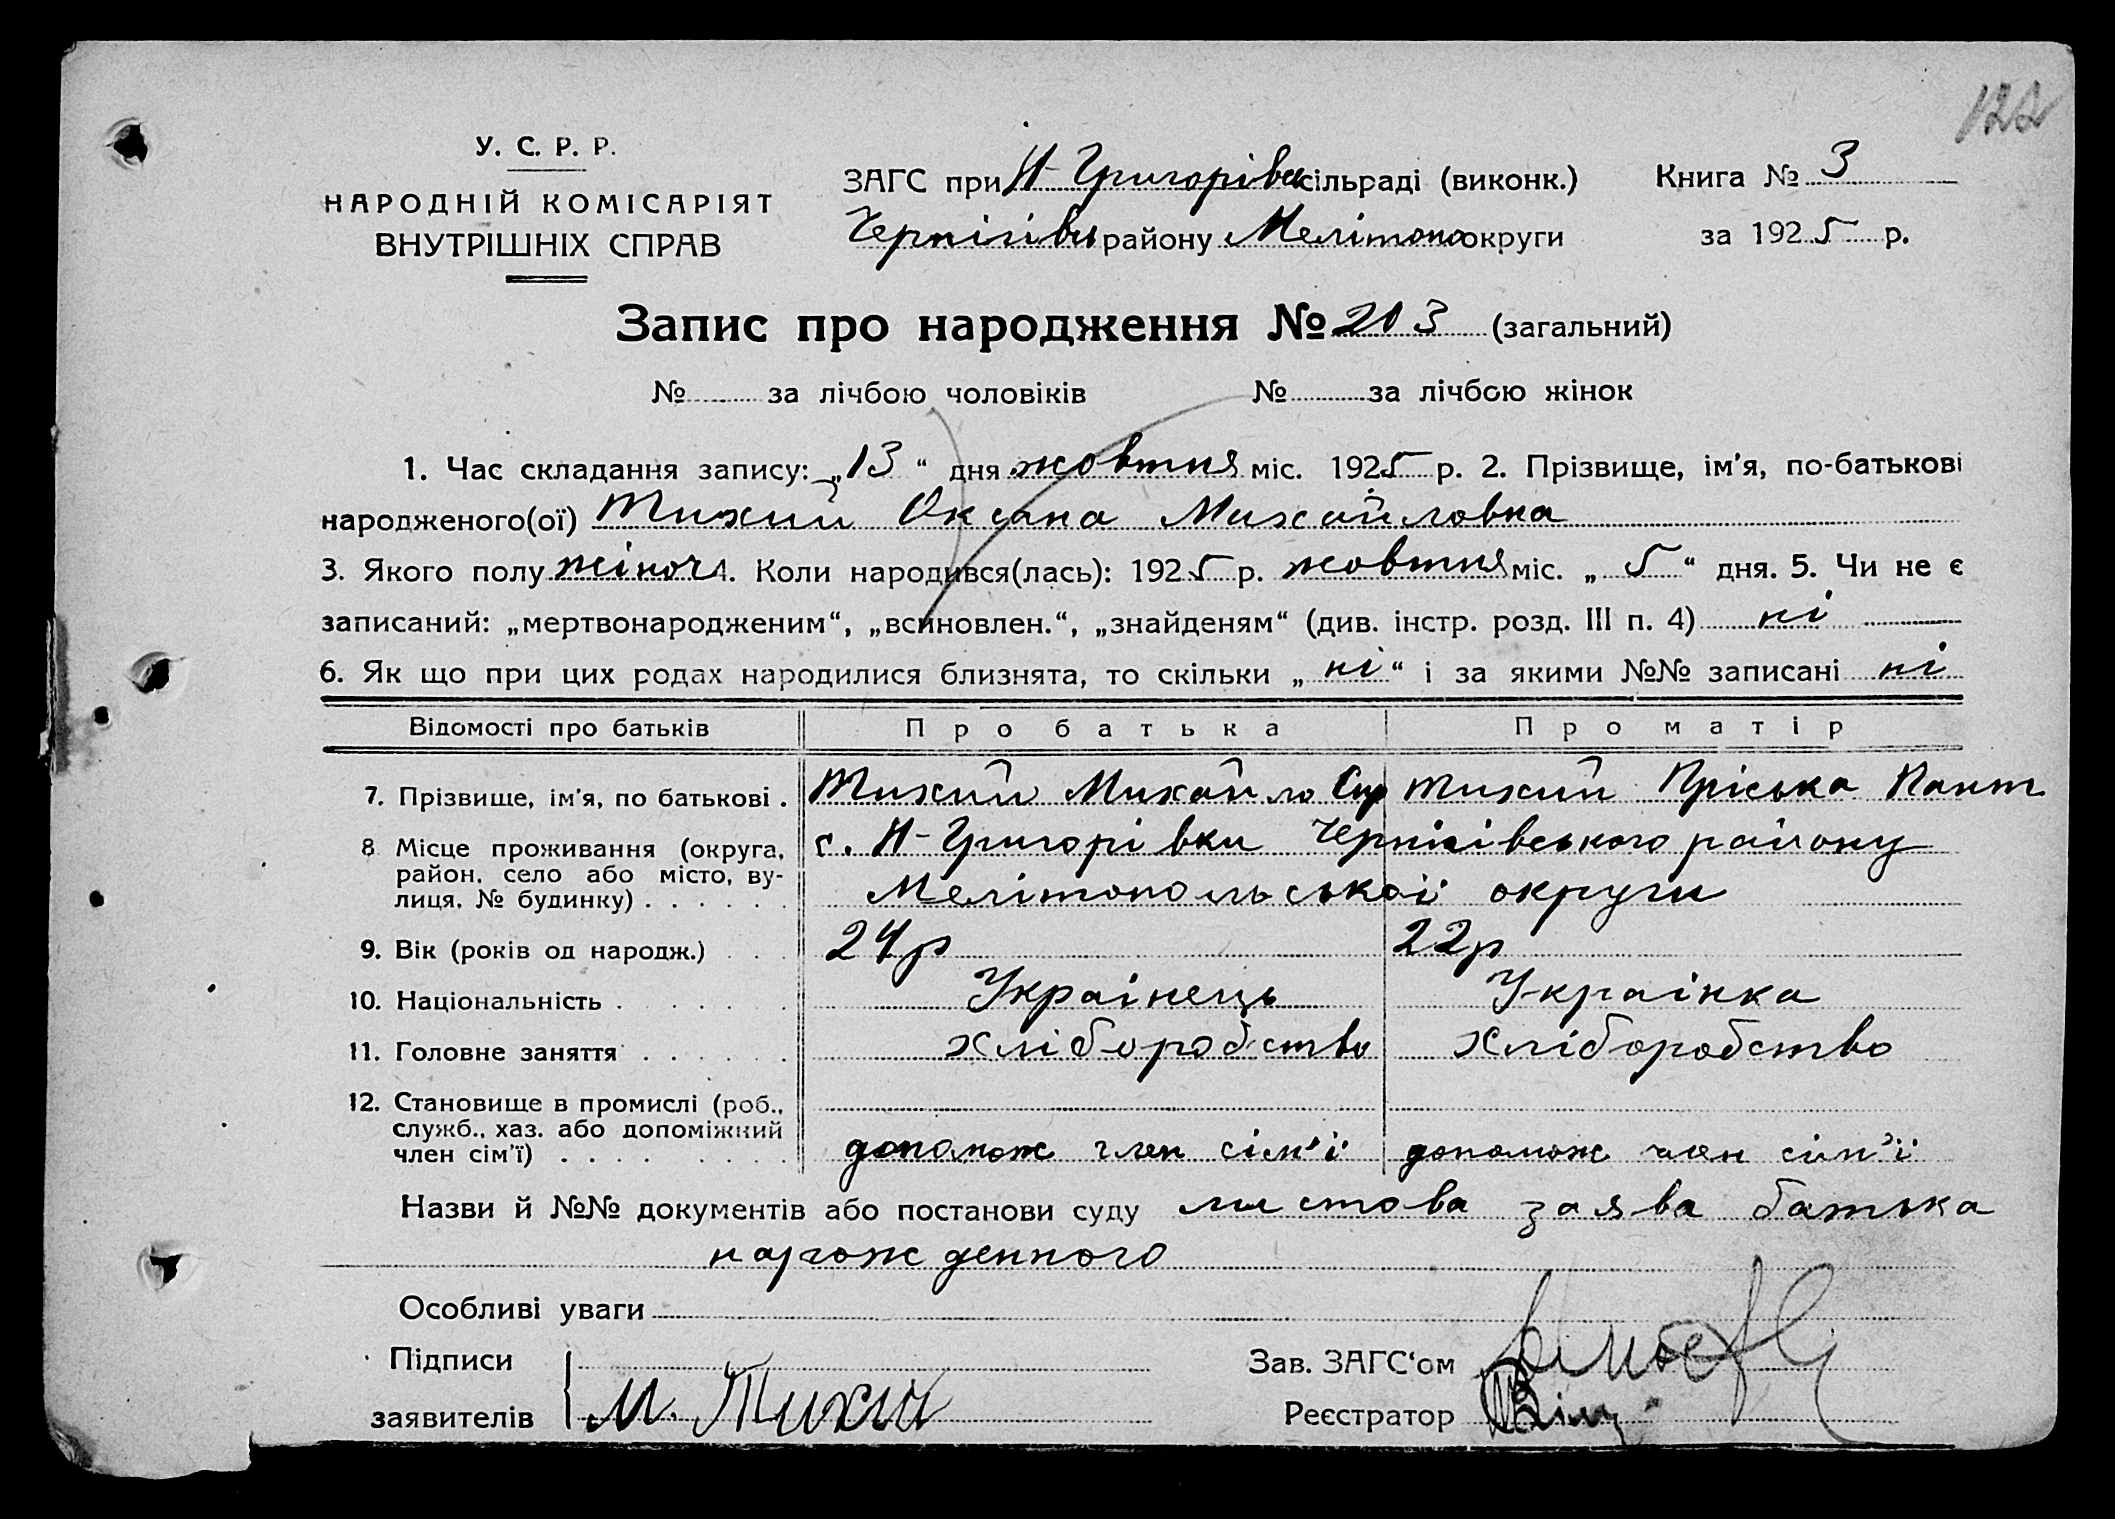 122
У. С. Р. Р.
НАРОДНІЙ КОМІСАРІЯТ
ВНУТРІШНІХ СПРАВ
ЗАГС при Н-Григорівск сільраді (виконк.) Книга № 3
Чернігівсь району Мелітопо округи за 1925 р.
Запис про народження № 203 (загальний)
№ за лічбою чоловіків № за лічбою жінок
1. Час складання запису: „13“ дня жовтня міс. 1925 р. 2. Прізвище, ім'я, по-батькові
народженого(ої) Тихий Оксана Михайловна
3. Якого полу жіноч 4. Коли народився(лась): 1925 р. жовтня міс. „5“ дня. 5. Чи не є
записаний: „мертвонародженим“, „всиновлен.“, „знайденям“ (див. інстр. розд. III п. 4) ні
6. Як що при цих родах народилися близнята, то скільки „ні“ і за якими №№ записані ні
Відомості про батьків Про батька Про матір
7. Прізвище, ім'я, по батькові . Тихий Михайло Тихий Пріська Пант
8 Місце проживання (округа, с. Н-Григорівки Чернігівського району
район, село або місто, ву-
лиця, № будинку) . . . . . . Мелітопольської округи
9. Вік (років од народж.) . . . 24р 22р
10. Національність . . . . . Українець Українка
11. Головне заняття . . . . . . Хліборобство Хліборобство
12. Становище в промислі (роб.,
служб., хаз. або допоміжний
член сім'ї) . . . . . . . . допомож член сім'ї допомож член сім'ї
Назви й №№ документів або постанови суду листова заява батька
нарожденного
Особливі уваги
Підписи Зав. ЗАГС'ом
заявителів М. Тихий Реєстратор